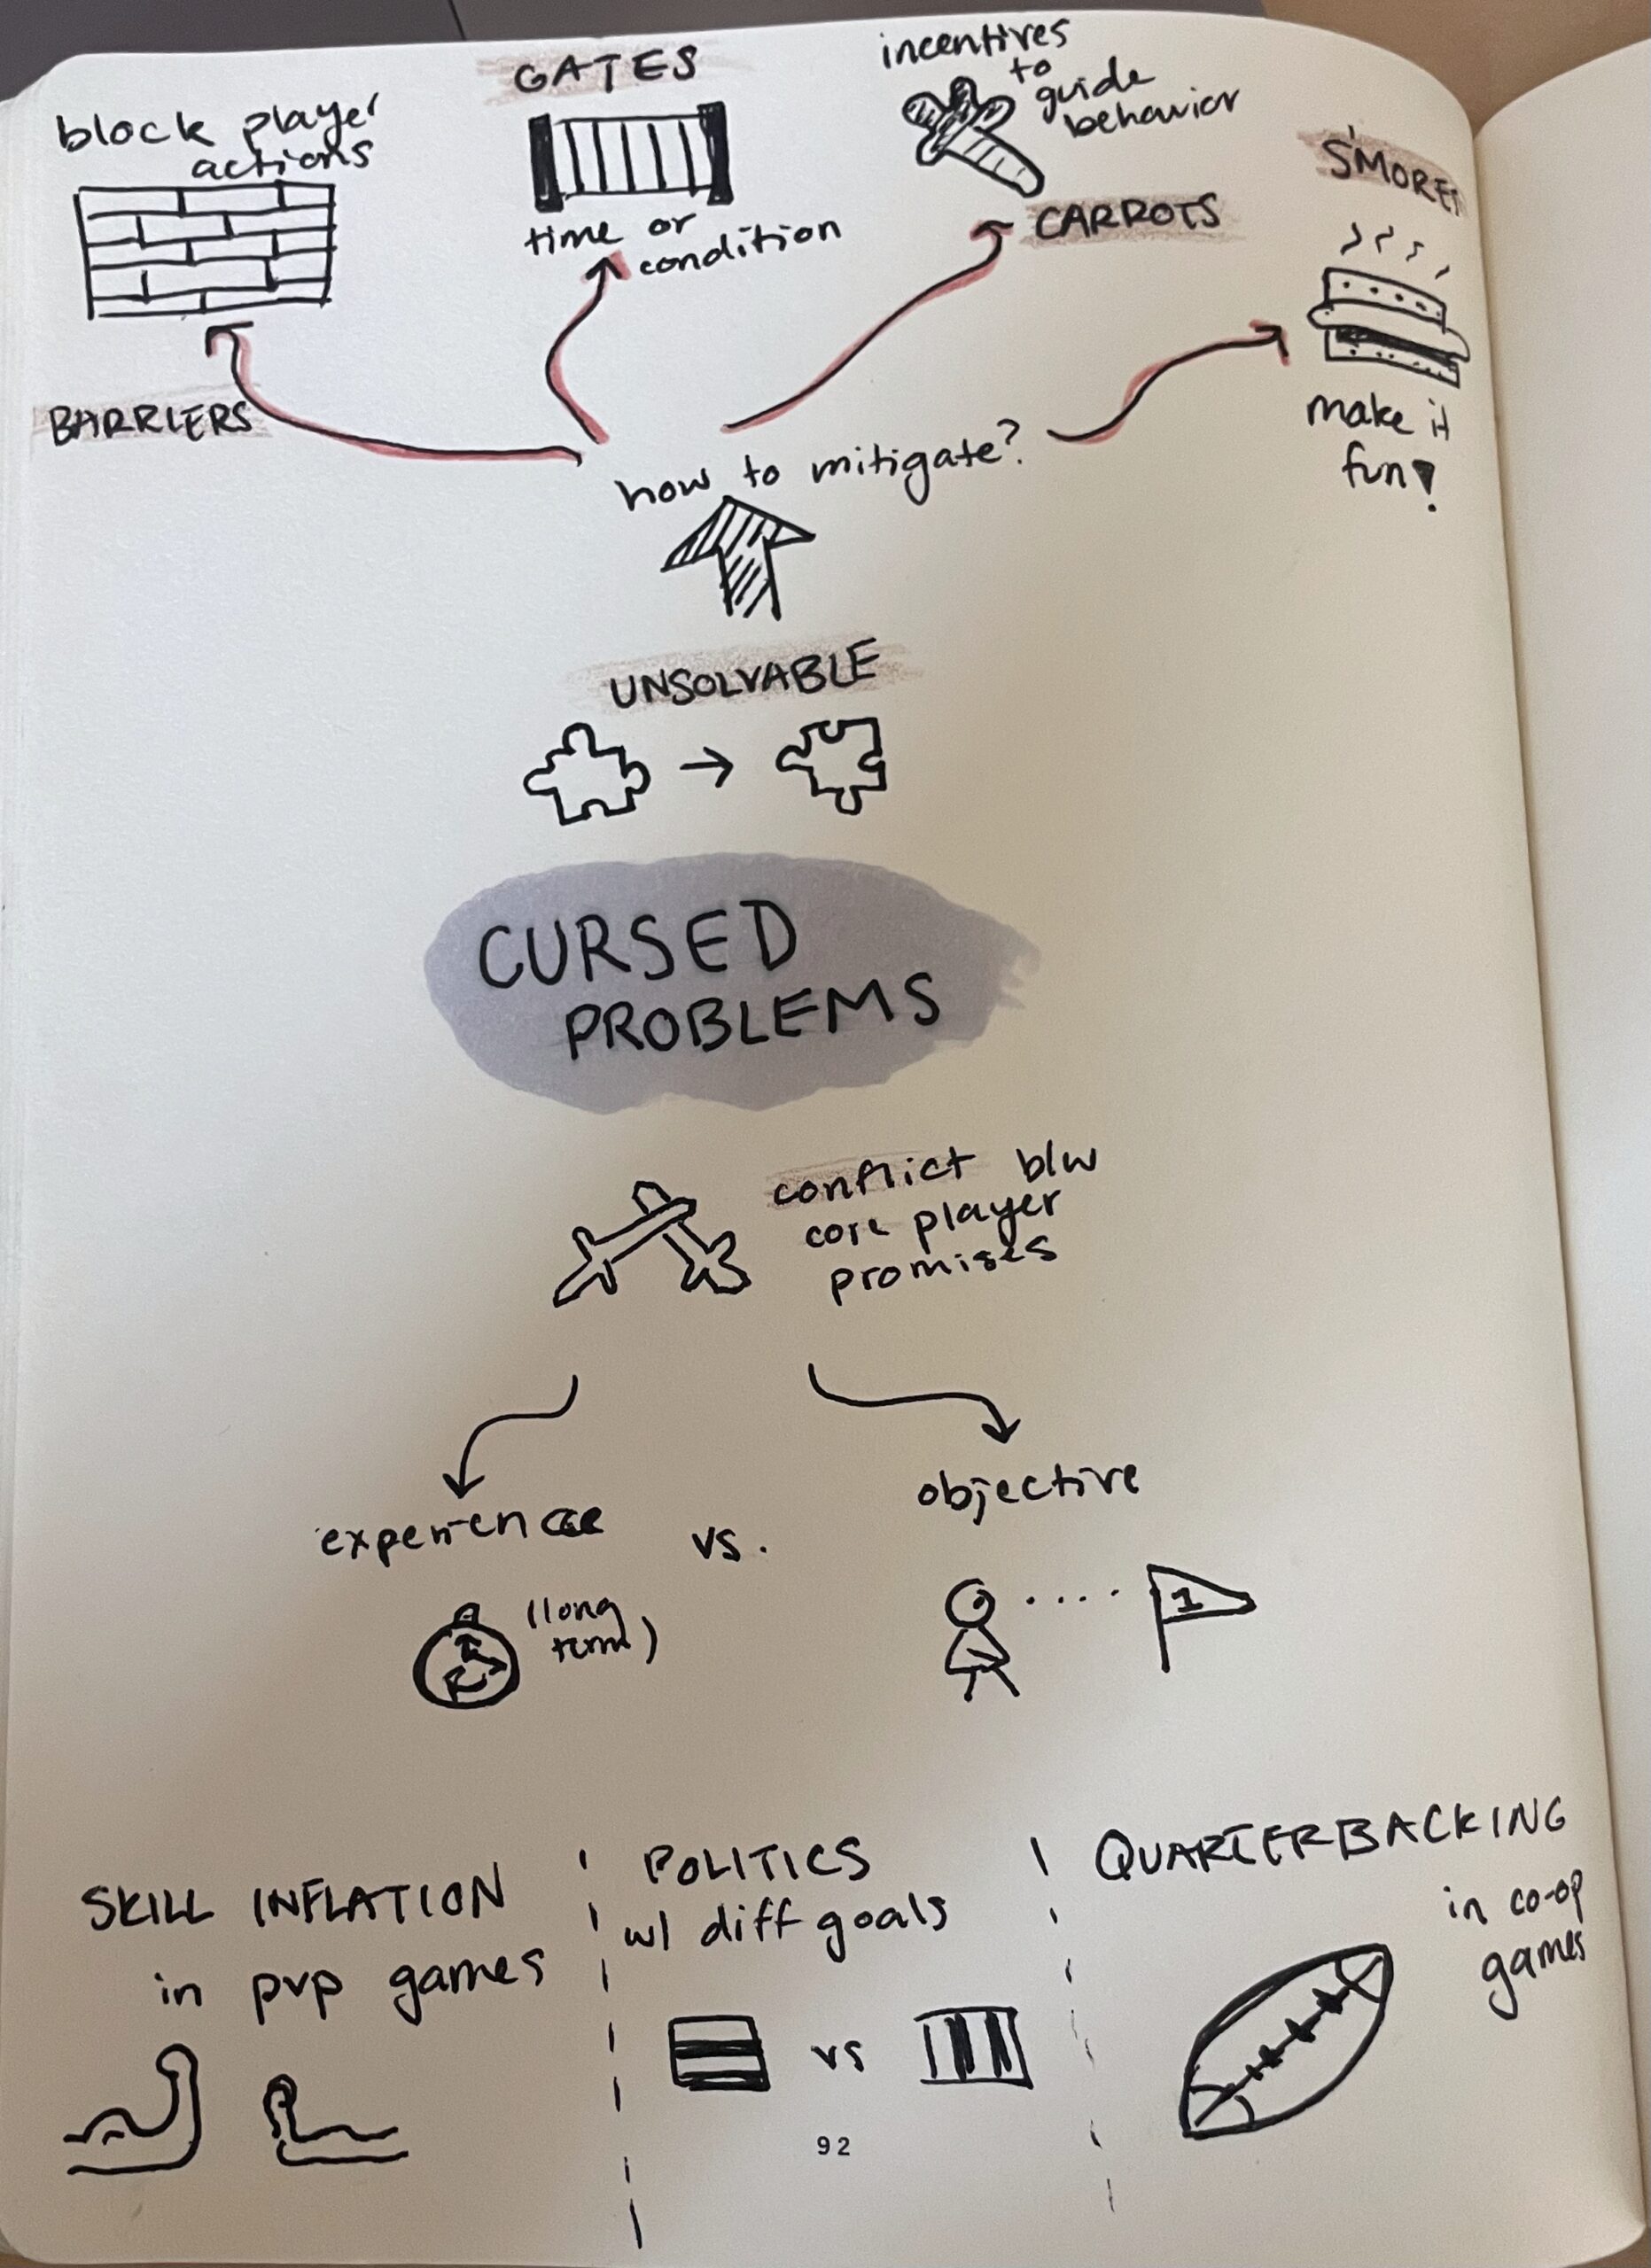 GATES
time or
condition
block player
actions
BARRIERS
incentives
to
guide
behavior
CARROTS
S'MORES
make it
fun!
how to mitigate?
UNSOLVABLE
CURSED
PROBLEMS
conflict b/w
core player
promises
experience
(long
term)
vs.
objective
1
SKILL INFLATION
in pvp games
POLITICS
w/ diff goals
vs
QUARTERBACKING
in co-op
games
92